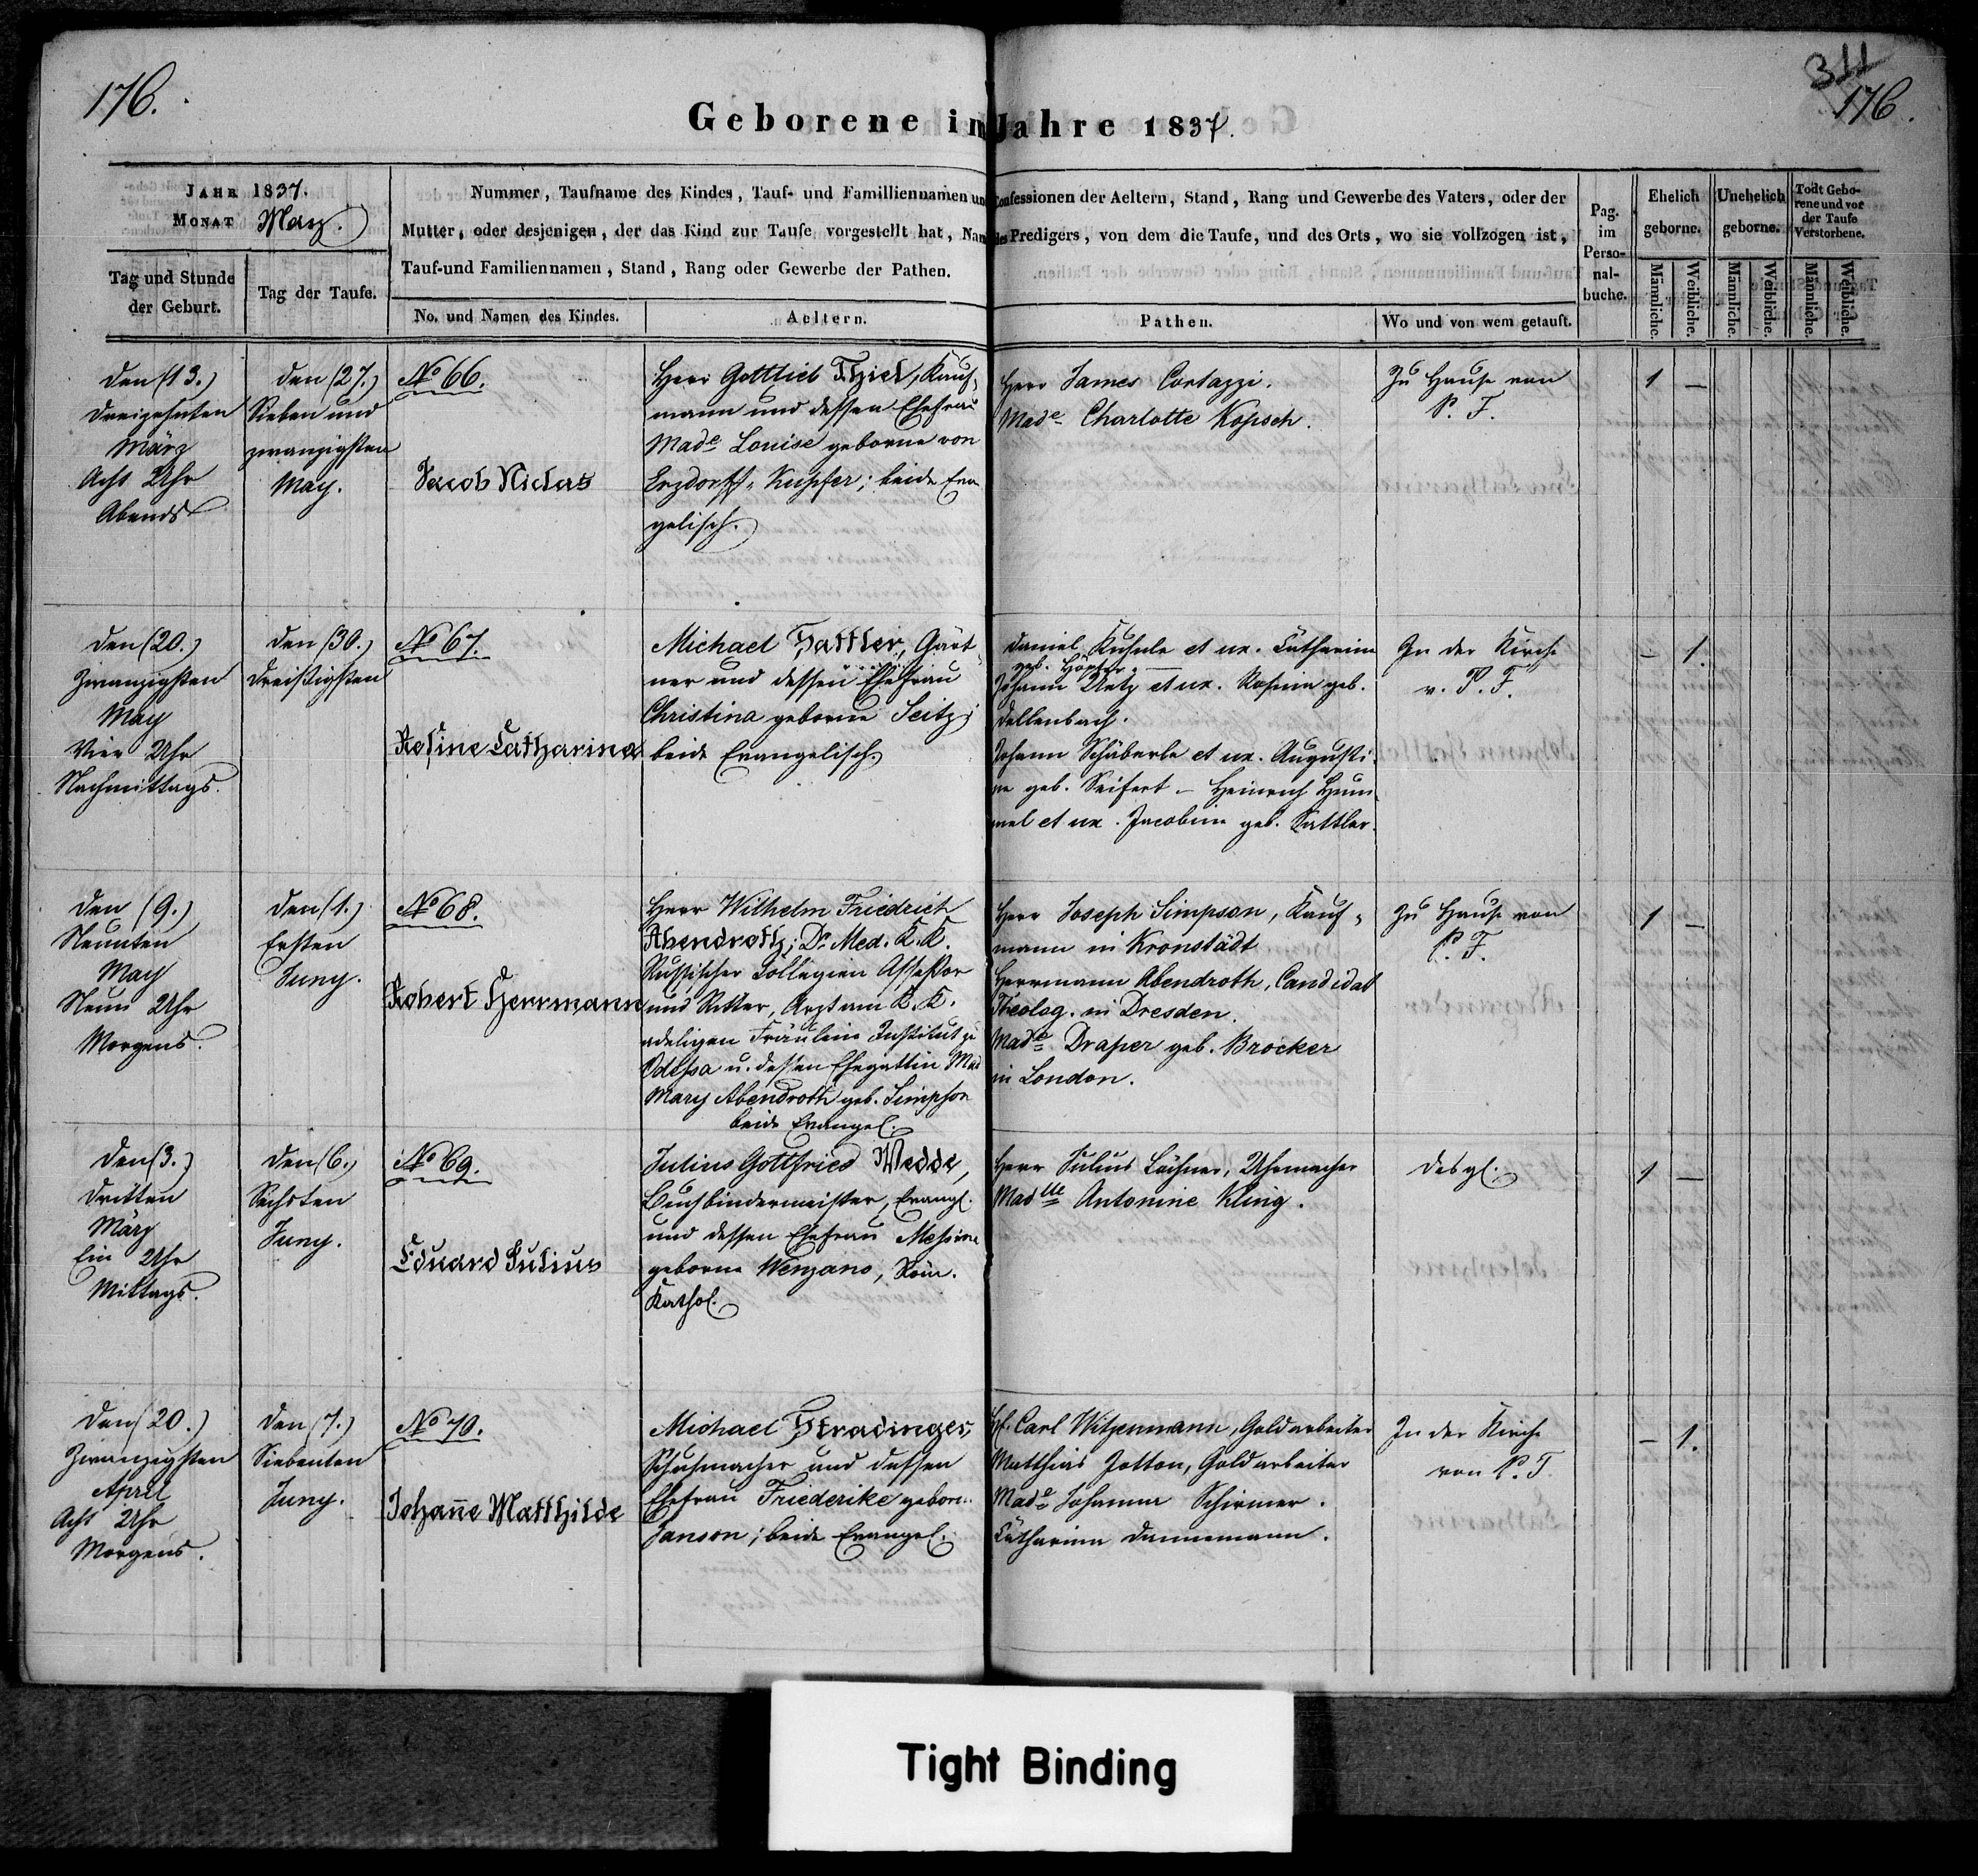 176.
311
176.
Geborene im Jahre 1837.
JAHR 1837.
MONAT May.
Tag und Stunde
der Geburt.
Tag der Taufe.
Nummer, Taufname des Kindes, Tauf- und Familliennamen und Confessionen der Aeltern, Stand, Rang und Gewerbe des Vaters, oder der
Mutter, oder desjenigen, der das Kind zur Taufe vorgestellt hat, Nam des Predigers, von dem die Taufe, und des Orts, wo sie vollzogen ist,
Tauf-und Familiennamen, Stand, Rang oder Gewerbe der Pathen.
No. und Namen des Kindes.
Aeltern.
Pathen.
Wo und von wem getauft.
Pag.
im
Perso-
nal-
buche.
Ehelich
geborne.
Unehelich
geborne.
Todt Gebo-
rene und vor
der Taufe
Verstorbene.
Männliche.
Weibliche.
Männliche.
Weibliche.
Männliche.
Weibliche.
den (13.)
dreizehnten
März
Acht Uhr
Abends
den (27.)
Sieben und
zwanzigsten
May.
No 66.
Jacob Niclas
Herr Gottlieb Thiel, Kauf-
mann und dessen Ehefrau
Made Louise geborne von
Erzdorff-Kupfer; beide Evan
gelisch.
Herr James Cortazzi.
Made Charlotte Kopisch.
Zu Hause von
P. F.
1 —
den (20.)
Zwanzigsten
May
Vier Uhr
Nachmittags.
den (30.)
dreißigsten
No 67.
Rosine Catharina
Michael Sattler, Gärt-
ner und dessen Ehefrau
Christina geborne Seitz;
beide Evangelisch.
Daniel Kuhnle et ux. Catharina
geb. Höpfer. —
Johann Utz et ux. Rosina geb.
Dellenbach.
Johann Schäberle et ux. Augusti-
ne geb. Seifert. — Heinrich Hum-
mel et ux. Jacobina geb. Sattler.
In der Kirche
v. P. F.
— 1.
den (9.)
Neunten
May
Neun Uhr
Morgens.
den (1.)
Ersten
Juny.
No 68.
Robert Herrmann
Herr Wilhelm Friedrich
Abendroth; Dr Med. K. K.
Russischer Collegien Assessor
und Ritter, Arzt am K. K.
adeligen Fräulein Institut zu
Odessa u. dessen Ehegattin Mad
Mary Abendroth geb. Simpson
beide Evangel.
Herr Joseph Simpson, Kauf-
mann in Kronstädt
Herrmann Abendroth, Candidat
Theolog. in Dresden.
Made Draper geb. Brocker
in London.
Zu Hause von
P. F.
1 —
den (3.)
dritten
März
Ein Uhr
Mittags.
den (6.)
Sechsten
Juny.
No 69.
Eduard Julius
Julius Gottfried Wedde,
Buchbindermeister, Evangl.
und dessen Ehefrau
geborne Wenzano, Röm.
Kathol.
Herr Julius Uhrmacher
Madlle Antonine Kling.
desgl.
1 —
den (20.)
Zwanzigsten
April
Acht Uhr
Morgens.
den (7.)
Siebenten
Juny.
No 70.
Johañe Matthilde
Michael Stradinger,
Schuhmacher und dessen
Ehefrau Friederike geborn.
Janson; beide Evangel.
H. Carl Witzenmann, Goldarbeiter
Matthias Jotton, Goldarbeiter
Made Johanna Schirmer.
Catharina Dannemann.
In der Kirche
von P. F.
— 1.
Tight Binding